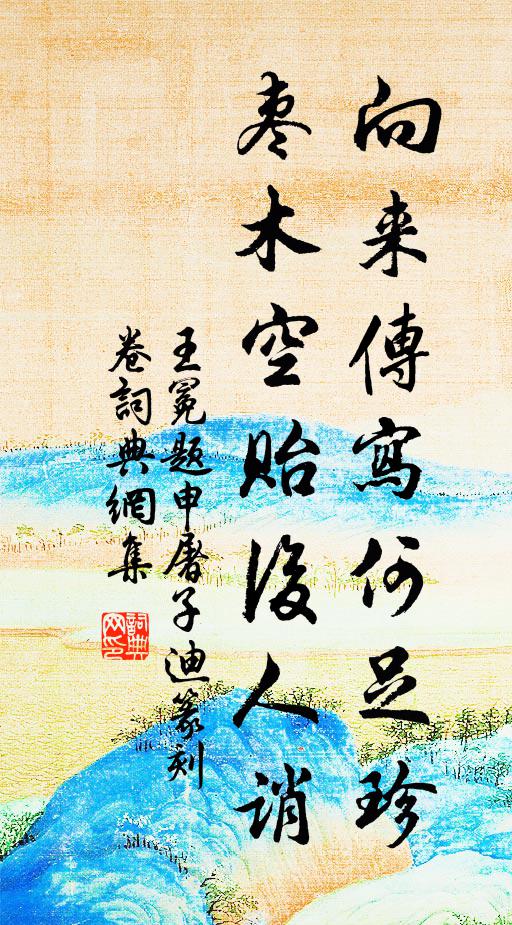 向来傳寫何足珍
枣木空貽後人誚
王冕題申屠子迪篆刻
卷詞典網集
詞典网印